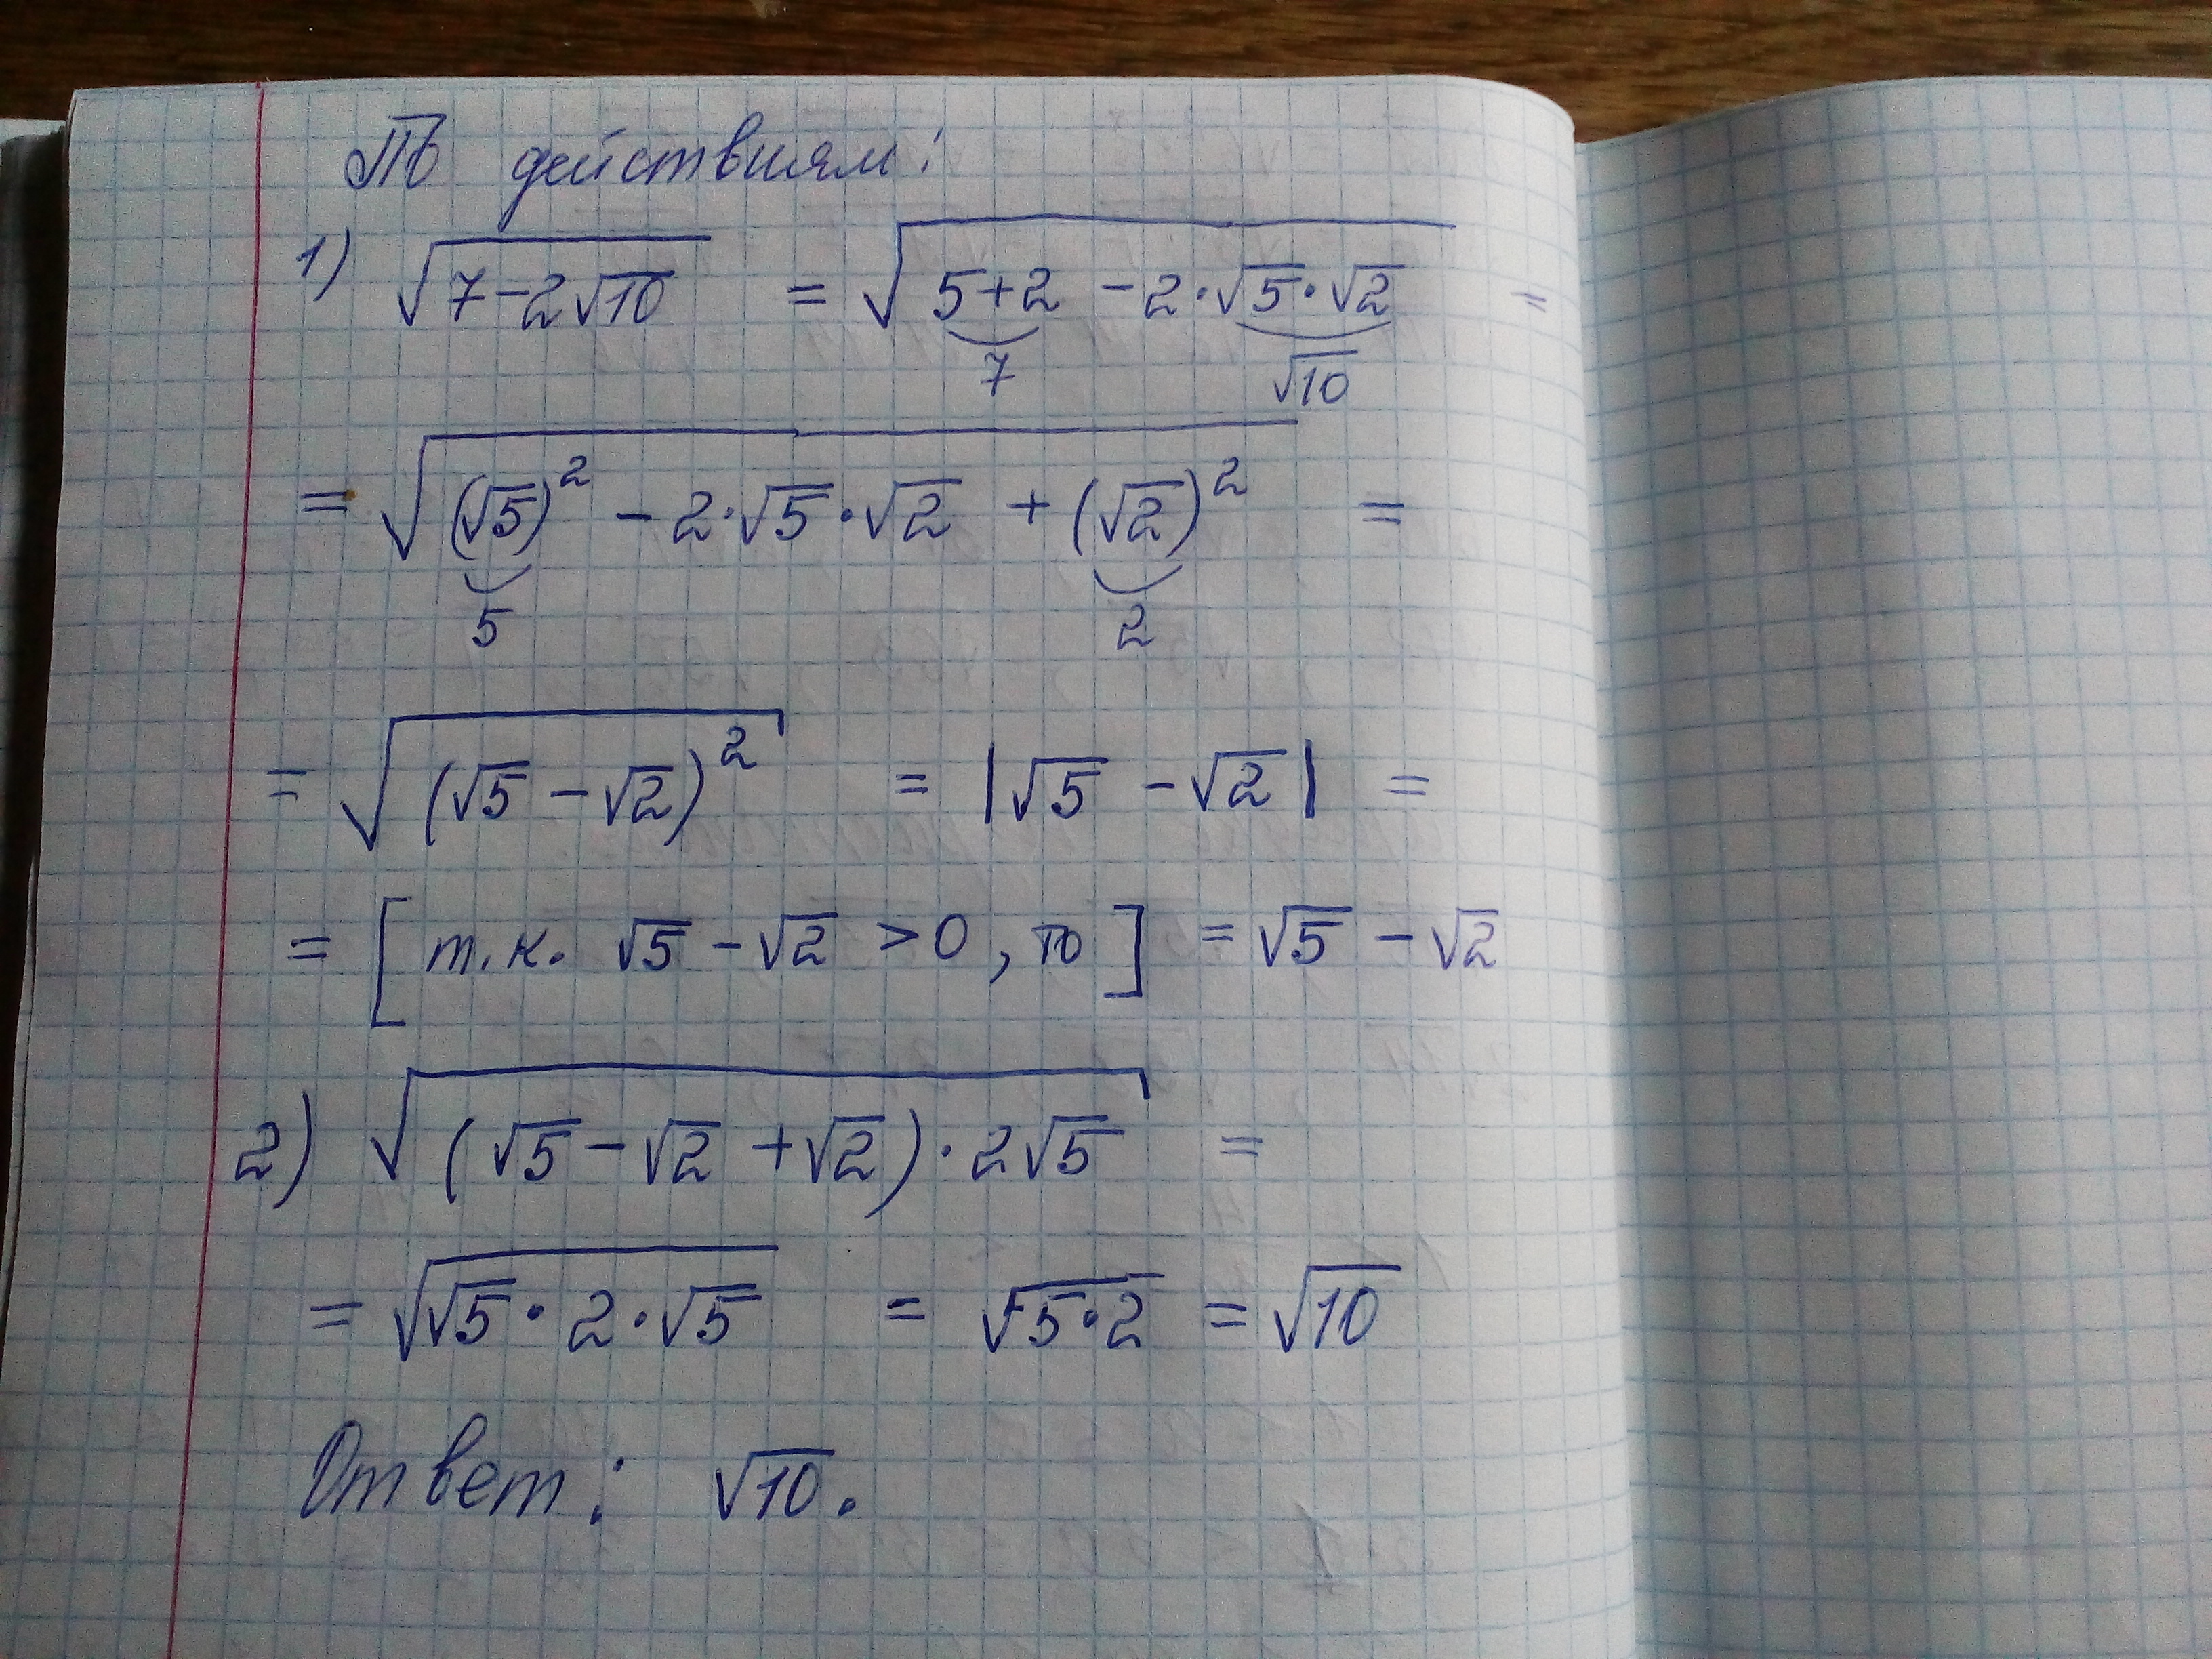 По действиям:
1) √(7-2√10) = √(5+2 -2·√5·√2) =
7 √10
= √((√5)² - 2·√5·√2 + (√2)²) =
5 2
= √((√5 - √2)²) = |√5 - √2| =
= [т.к. √5 - √2 > 0, то] = √5 - √2
2) √((√5 - √2 + √2)·2√5) =
= √(√5·2·√5) = √(5·2) = √10
Ответ: √10.